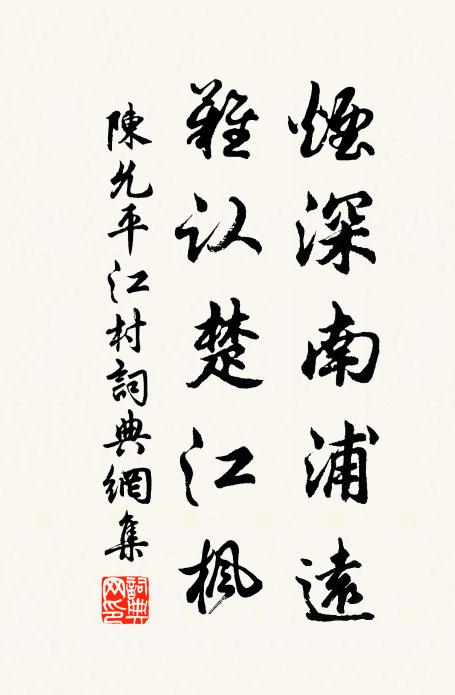 煙深南浦遠
難认楚江楓
陳允平江村詞典網集
詞典网印